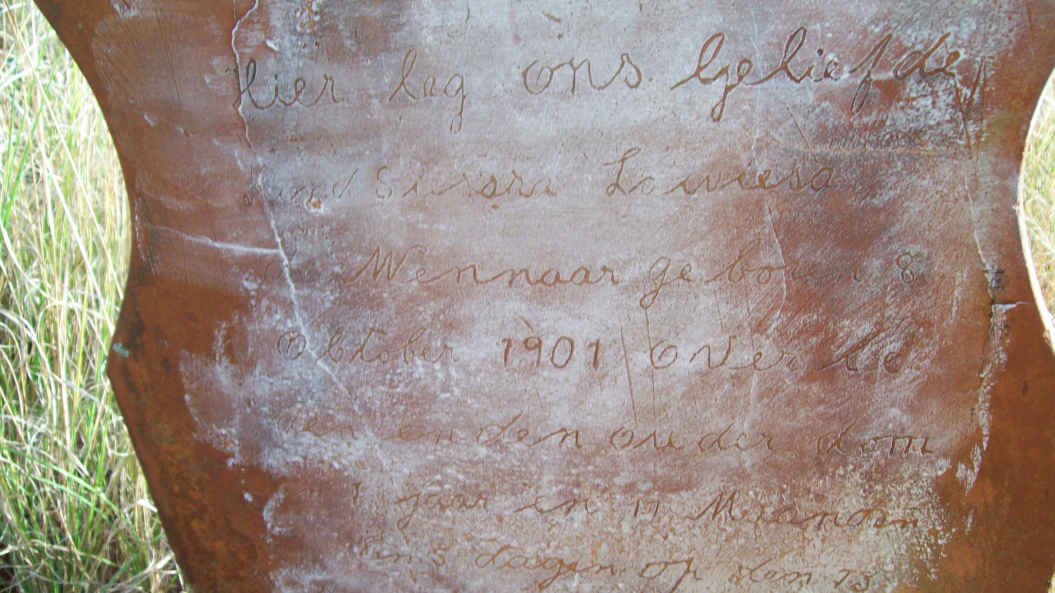 hier leg ons Geliefde
Louiesa
Wennaar geboren 8
October 1901 over le
in den ouder dom
jaar en 11 Maanden
en 5 dagen op den 13